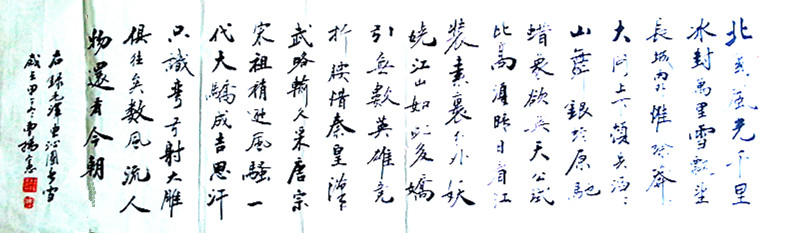 北國風光千里
冰封萬里雪飄望
長城內外惟餘莽〻
大河上下頓失滔〻
山舞銀蛇原馳
蠟象欲與天公試
比高須晴日看
裝素裹分外妖
嬈江山如此多嬌
引無數英雄競
折腰惜秦皇漢
武略輸文采唐宗
宋祖稍遜風騷一
代天驕成吉思汗
只識彎弓射大雕
俱往矣數風流人
物還看今朝
右錄毛澤東沁園春雪